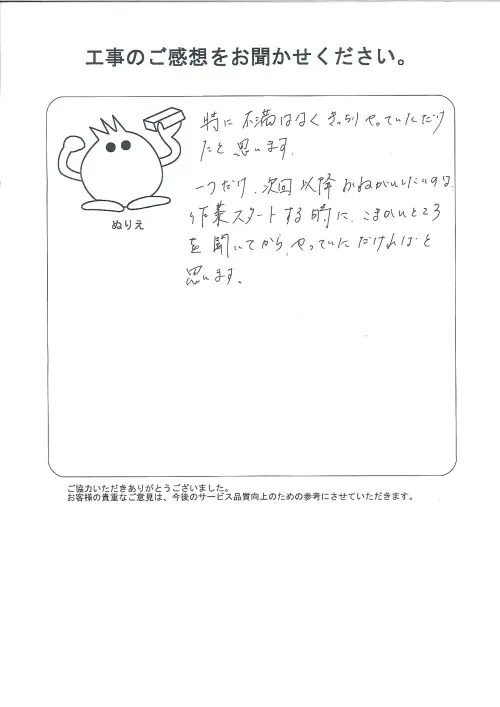 工事のご感想をお聞かせください。
特に不満はなくきっちりやっていただけ
たと思います.
一つだけ、次回以降おねがいしたいのは、
作業スタートする時に、こまかいところ
を聞いてから、やっていただければと
思います。
ぬりえ
ご協力いただきありがとうございました。
お客様の貴重なご意見は、今後のサービス品質向上のための参考にさせていただきます。